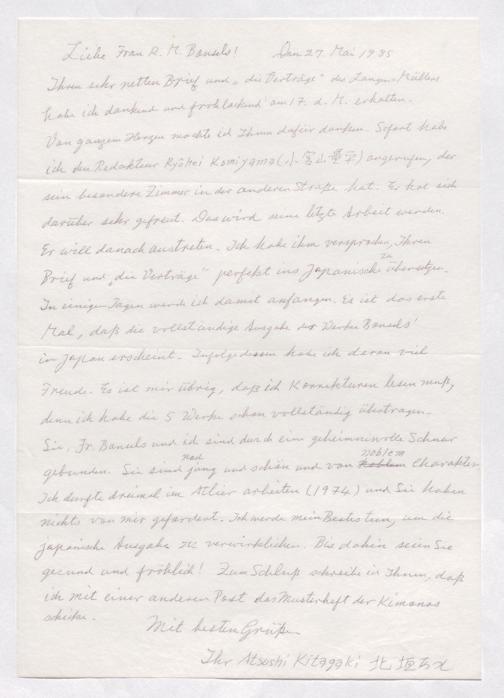 Liebe Frau R. M. Bonsels! Den 27. Mai 1985
Ihren sehr netten Brief und „die Verträge" des Langen-Müllers
habe ich dankend und frohlockend am 17. d. M. erhalten.
Von ganzem Herzen möchte ich Ihnen dafür danken. Sofort habe
ich den Redakteur Ryôhei Komiyama (小宮山量平) angerufen, der
sein besondere Zimmer in der anderen Straße hat. Er hat sich
darüber sehr gefreut. Das wird seine letzte Arbeit werden.
Er will danach austreten. Ich habe ihm versprochen, Ihren
Brief und „die Verträge" perfekt ins Japanische zu übersetzen.
In einigen Tagen werde ich damit anfangen. Es ist das erste
Mal, daß die vollständige Ausgabe der Werke Bonsels'
in Japan erscheint. Infolgedessen habe ich daran viel
Freude. Es ist mir übrig, daß ich Korrekturen lesen muß,
denn ich habe die 5 Werke schon vollständig übertragen.
Sie, Fr. Bonsels und ich sind durch eine geheimnisvolle Schnur
gebunden. Sie sind jung und schön und von noblem Charakter.
Ich durfte dreimal im Atlier arbeiten (1974) und Sie haben
nichts von mir gefordert. Ich werde mein Bestes tun, um die
japanische Ausgabe zu verwirklichen. Bis dahin seien Sie
gesund und fröhlich! Zum Schluß schreibe ich Ihnen, daß
ich mit einer anderen Post das Musterheft der Kimonos
schicke.
Mit besten Grüßen
Ihr Atsoshi Kitagaki 北垣